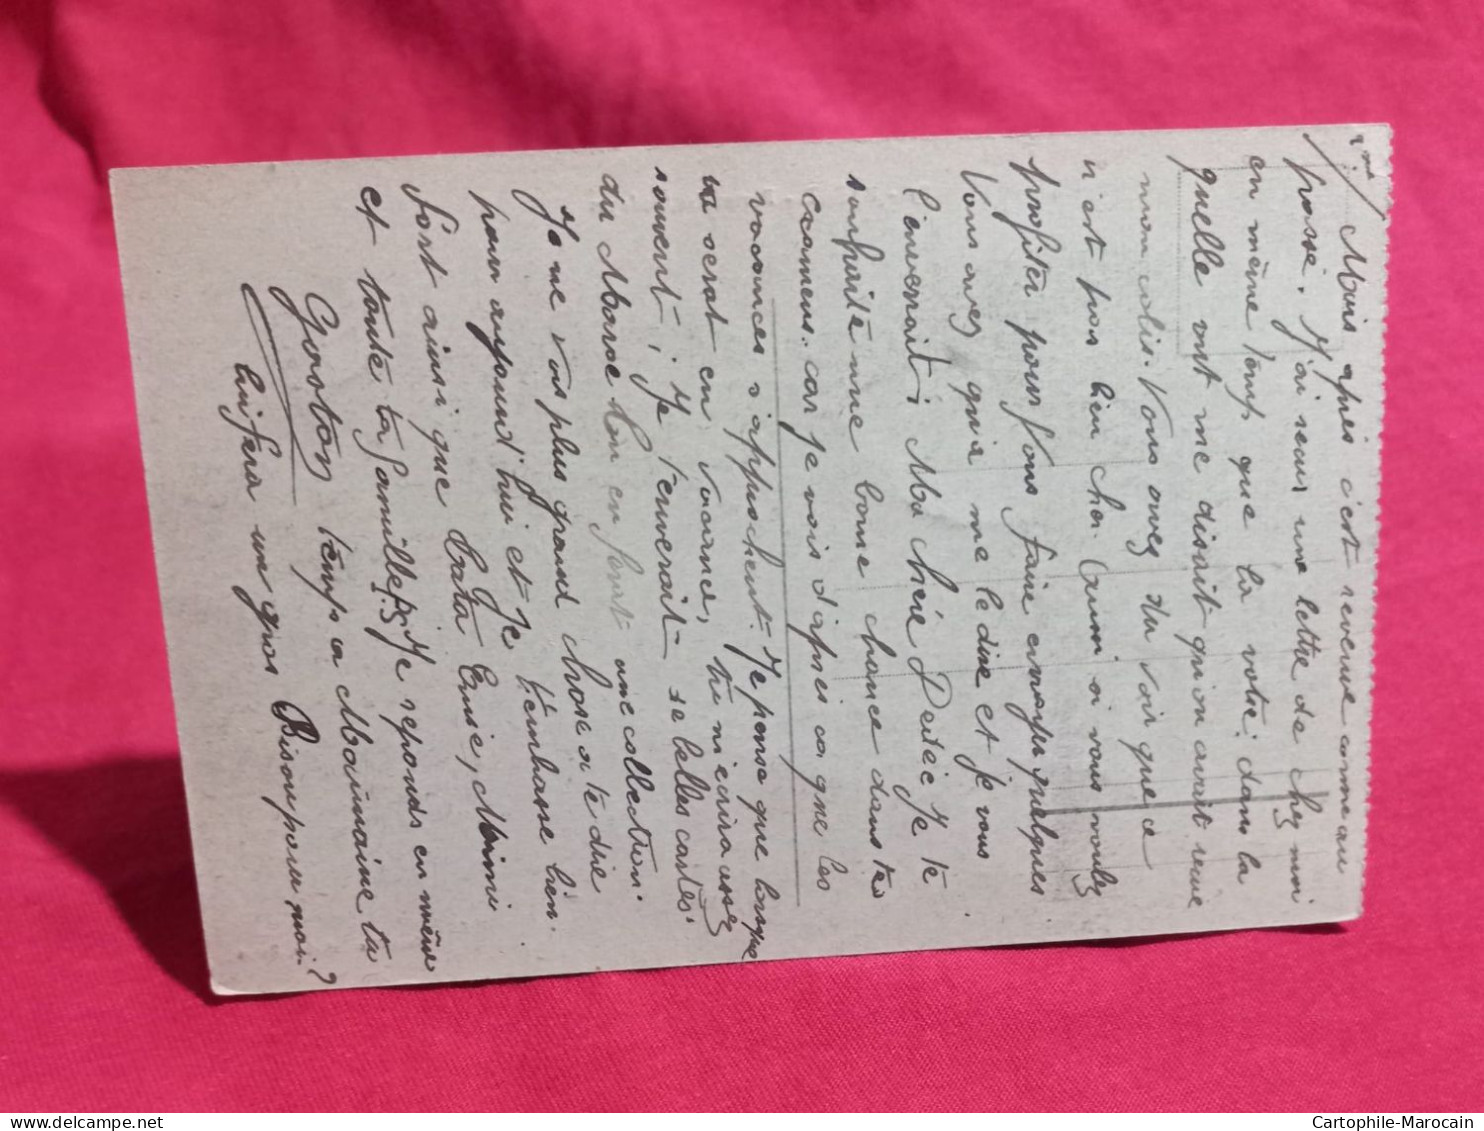 1er/
Mois après c'est revenue comme au
passé. J'ai recus une lettre de chez moi
en même temps que la votre, dans la
quelle ont me disait qu'on avait reçue
mon colis. Vous avez du voir que ce
n'est pas bien cher. Aussi si vous voulez
profiter pour vous faire envoyer quelques
Vous avez qu'a me le dire et je vous
l'enverrait; Ma chère Dédée Je te
souhaite une bonne chance dans tes
examens. car je vois d'après ca que les
vacances s'approchent. Je pense que lorsque
tu serat en vacance, tu m'écrira assez
souvent; Je t'enverait de belles cartes.
du Maroc tu en ferat une collection.
Je ne vos plus grand chose a te dire
pour aujourd'hui et Je t'embrasse bien.
Fort ainsi que Tata Mimi
et toute ta famille. Je réponds en même
temps a Mounaine tu
Gaston
lui fera un gros Bisou pour moi?
Cartophile-Marocain